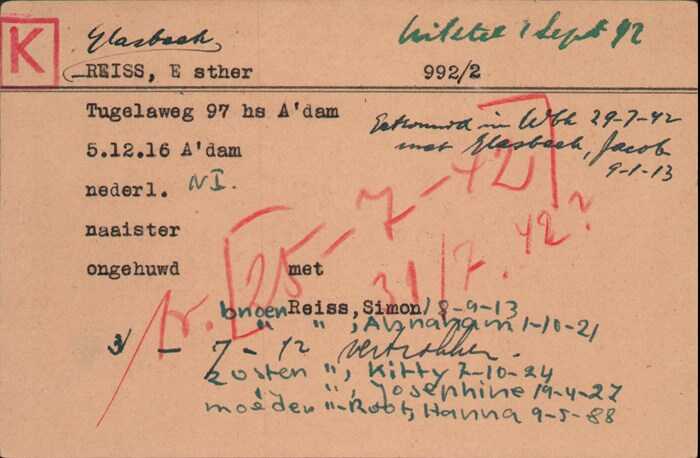 K
Glasbeek
Uitstel 1 Sept 42
REISS, E sther 992/2
Tugelaweg 97 hs A'dam
Getrouwd in Wbk 29-7-42
met Glasbeek, Jacob
9-1-13
5.12.16 A'dam
nederl. NI.
naaister
ongehuwd met
Tr. [25-7-42]
31/7.42?
broer Reiss, Simon 18-9-13
" " , Abraham 1-10-21
31 - 7 - 42 vertrokken.
zusten ", Kitty 7-10-24
" ", Josephine 19-4-27
moeder "-Root, Hanna 9-5-88